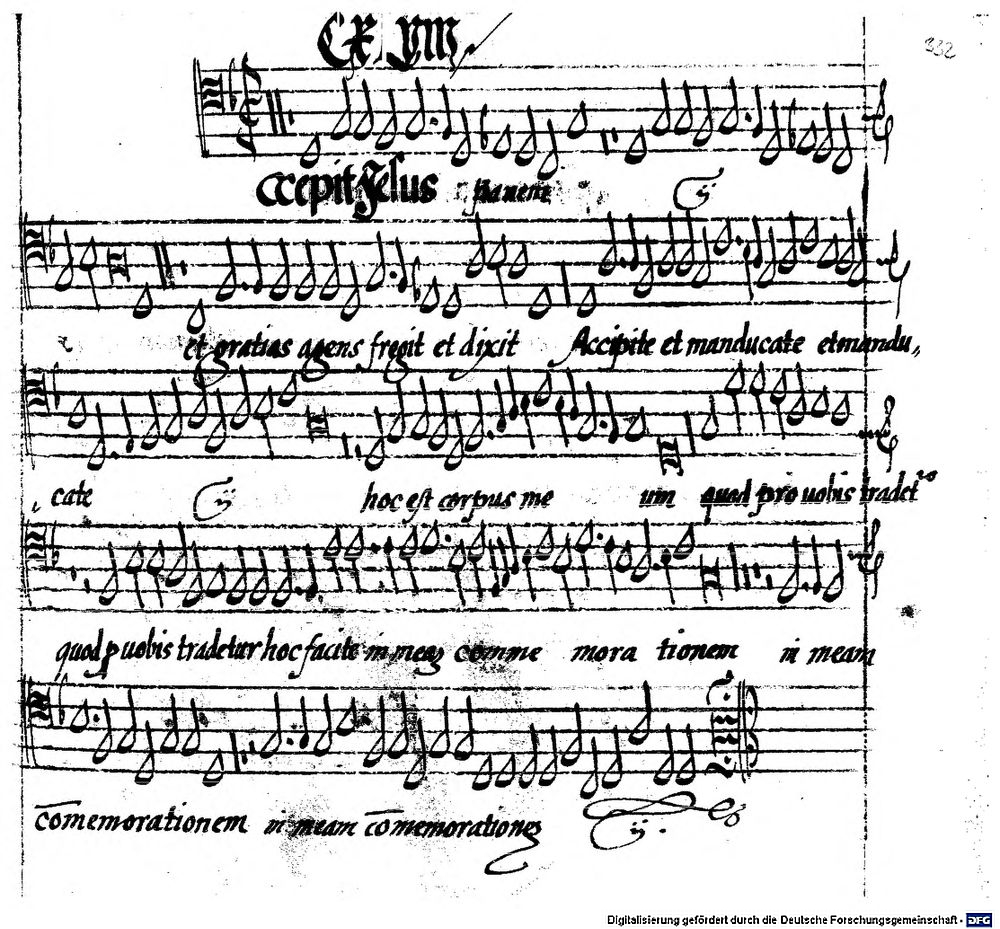 CXVIII
332
Accepit Jesus panem ij
et gratias agens fregit et dixit Accipite et manducate et mandu,,
cate ij hoc est corpus me um quod pro uobis tradet
quod p uobis tradetur hoc facite in meã comme mora tionem in meam
cōmemorationem in meam cōmemorationẽ ij.
Digitalisierung gefördert durch die Deutsche Forschungsgemeinschaft - DFG